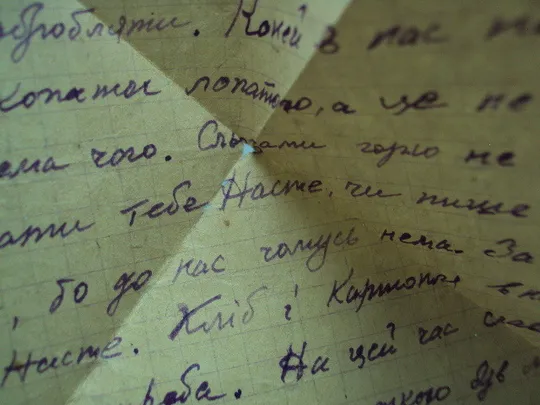 обробляти. Коней в нас
Копатос лопатою, а це не
ема чого. Сльозами горю не
ати тебе Насте, чи пише
, бо до нас чомусь нема. За
Насте. Хліб і Картопля
На цей час